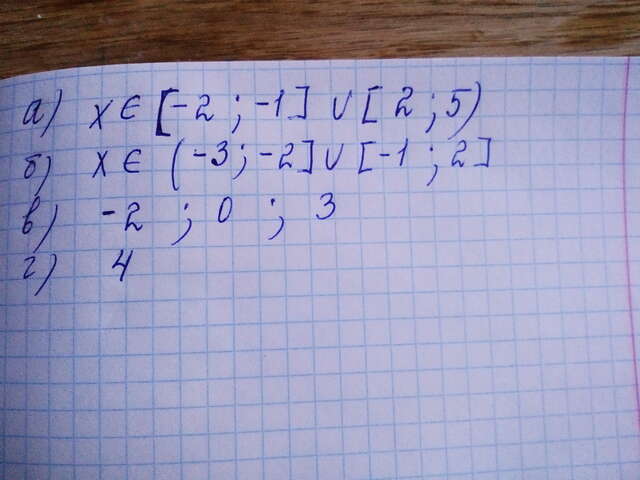 а) x ∈ [-2 ; -1] ∪ [ 2 ; 5)
б) x ∈ (-3 ; -2] ∪ [-1 ; 2]
в) -2 ; 0 ; 3
г) 4